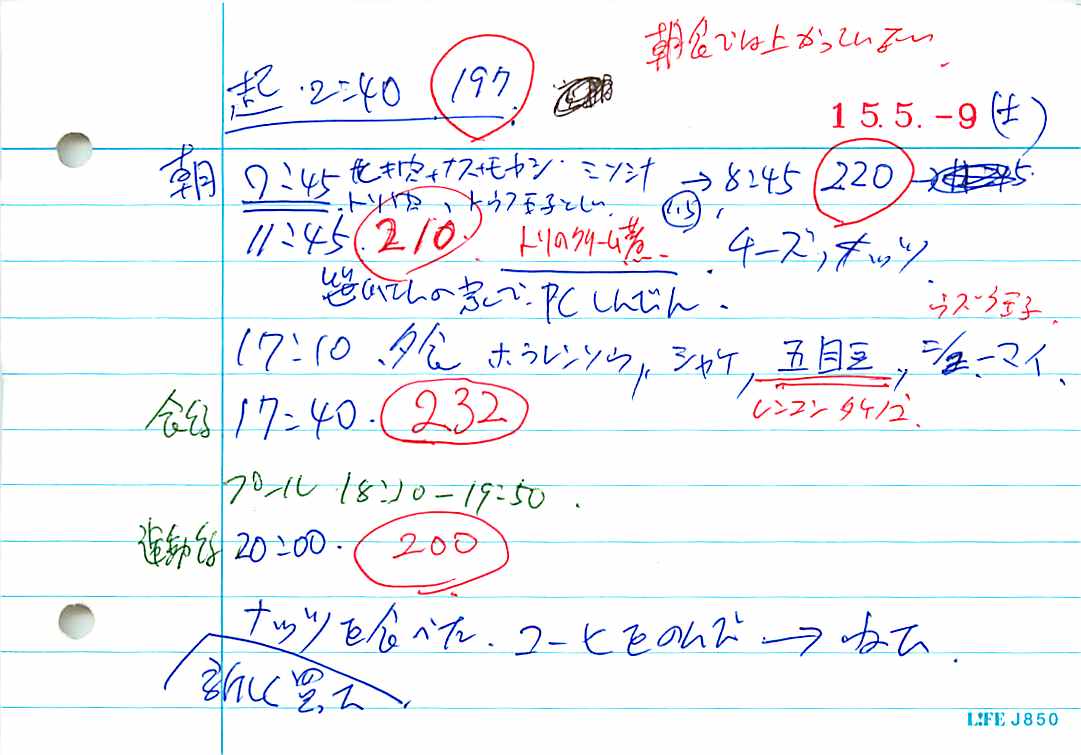 朝食では上がっていない
起 2:40 197
15.5.-9(土)
朝 7:45 焼き肉+ナス+モヤシ ミツシナ → 8:45 220
トリ肉、トウフ玉子とじ 1.5
11:45 210 トリのクリーム煮 チーズ,ナッツ
でPCしんだん.
ウズラ玉子
17:10 夕食 ホウレンソウ, シャケ, 五目豆, シューマイ
レンコン タケノコ
食後 17:40. 232
プール 18:10-19:50.
運動後 20:00. 200
ナッツを食べた. コーヒをのんで → ねた.
新しく買った
LIFE J850